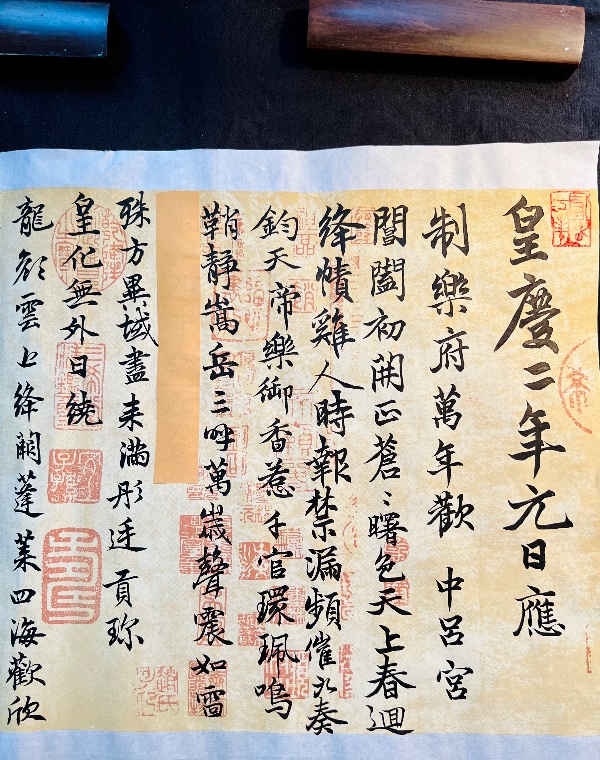 皇慶二年元日應
制樂府萬年歡 中呂宮
閶闔初開正蒼〻曙色天上春迴
絳幘雞人時報禁漏頻催九奏
鈞天帝樂御香惹千官環珮鳴
鞘靜嵩岳三呼萬歲聲震如雷
殊方異域盡来滿彤廷貢珎
皇化無外日繞
龍顔雲上絳闕蓬萊四海歡欣